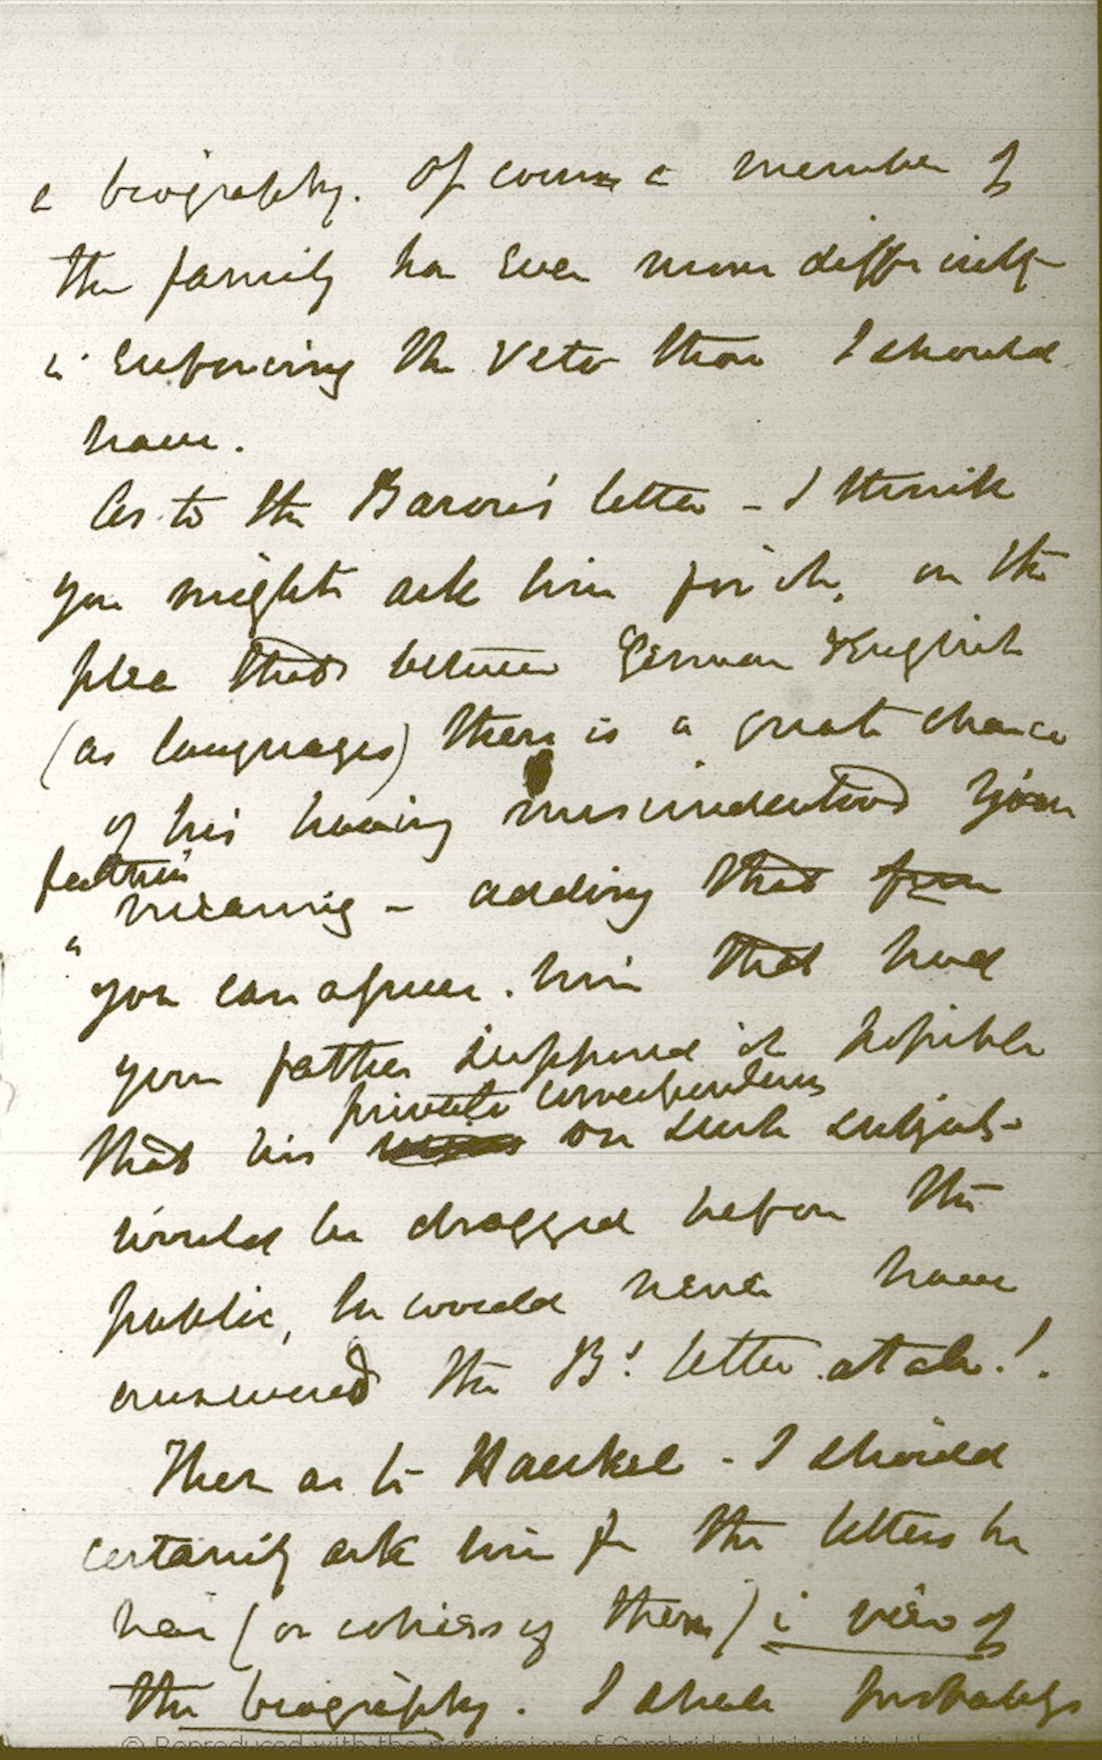 a biography. Of course a member of
the family has even more difficulty
in enforcing the veto than I should
have.
As to the Baron's letter – I think
you might ask him for it, on the
plea that between German & English
(as languages) there is a great chance
of his having misunderstood your
father's
meaning – adding that
you can assure him that had
your father supposed it possible
private correspondence
that his on such subjects
would be dragged before the
public, he would never have
answered the B's letter at all!.
Then as to Haeckel – I should
certainly ask him for the letters he
has (or copies of them) in view of
the biography. I shall probably
© Reproduced with the permission of Cambridge University